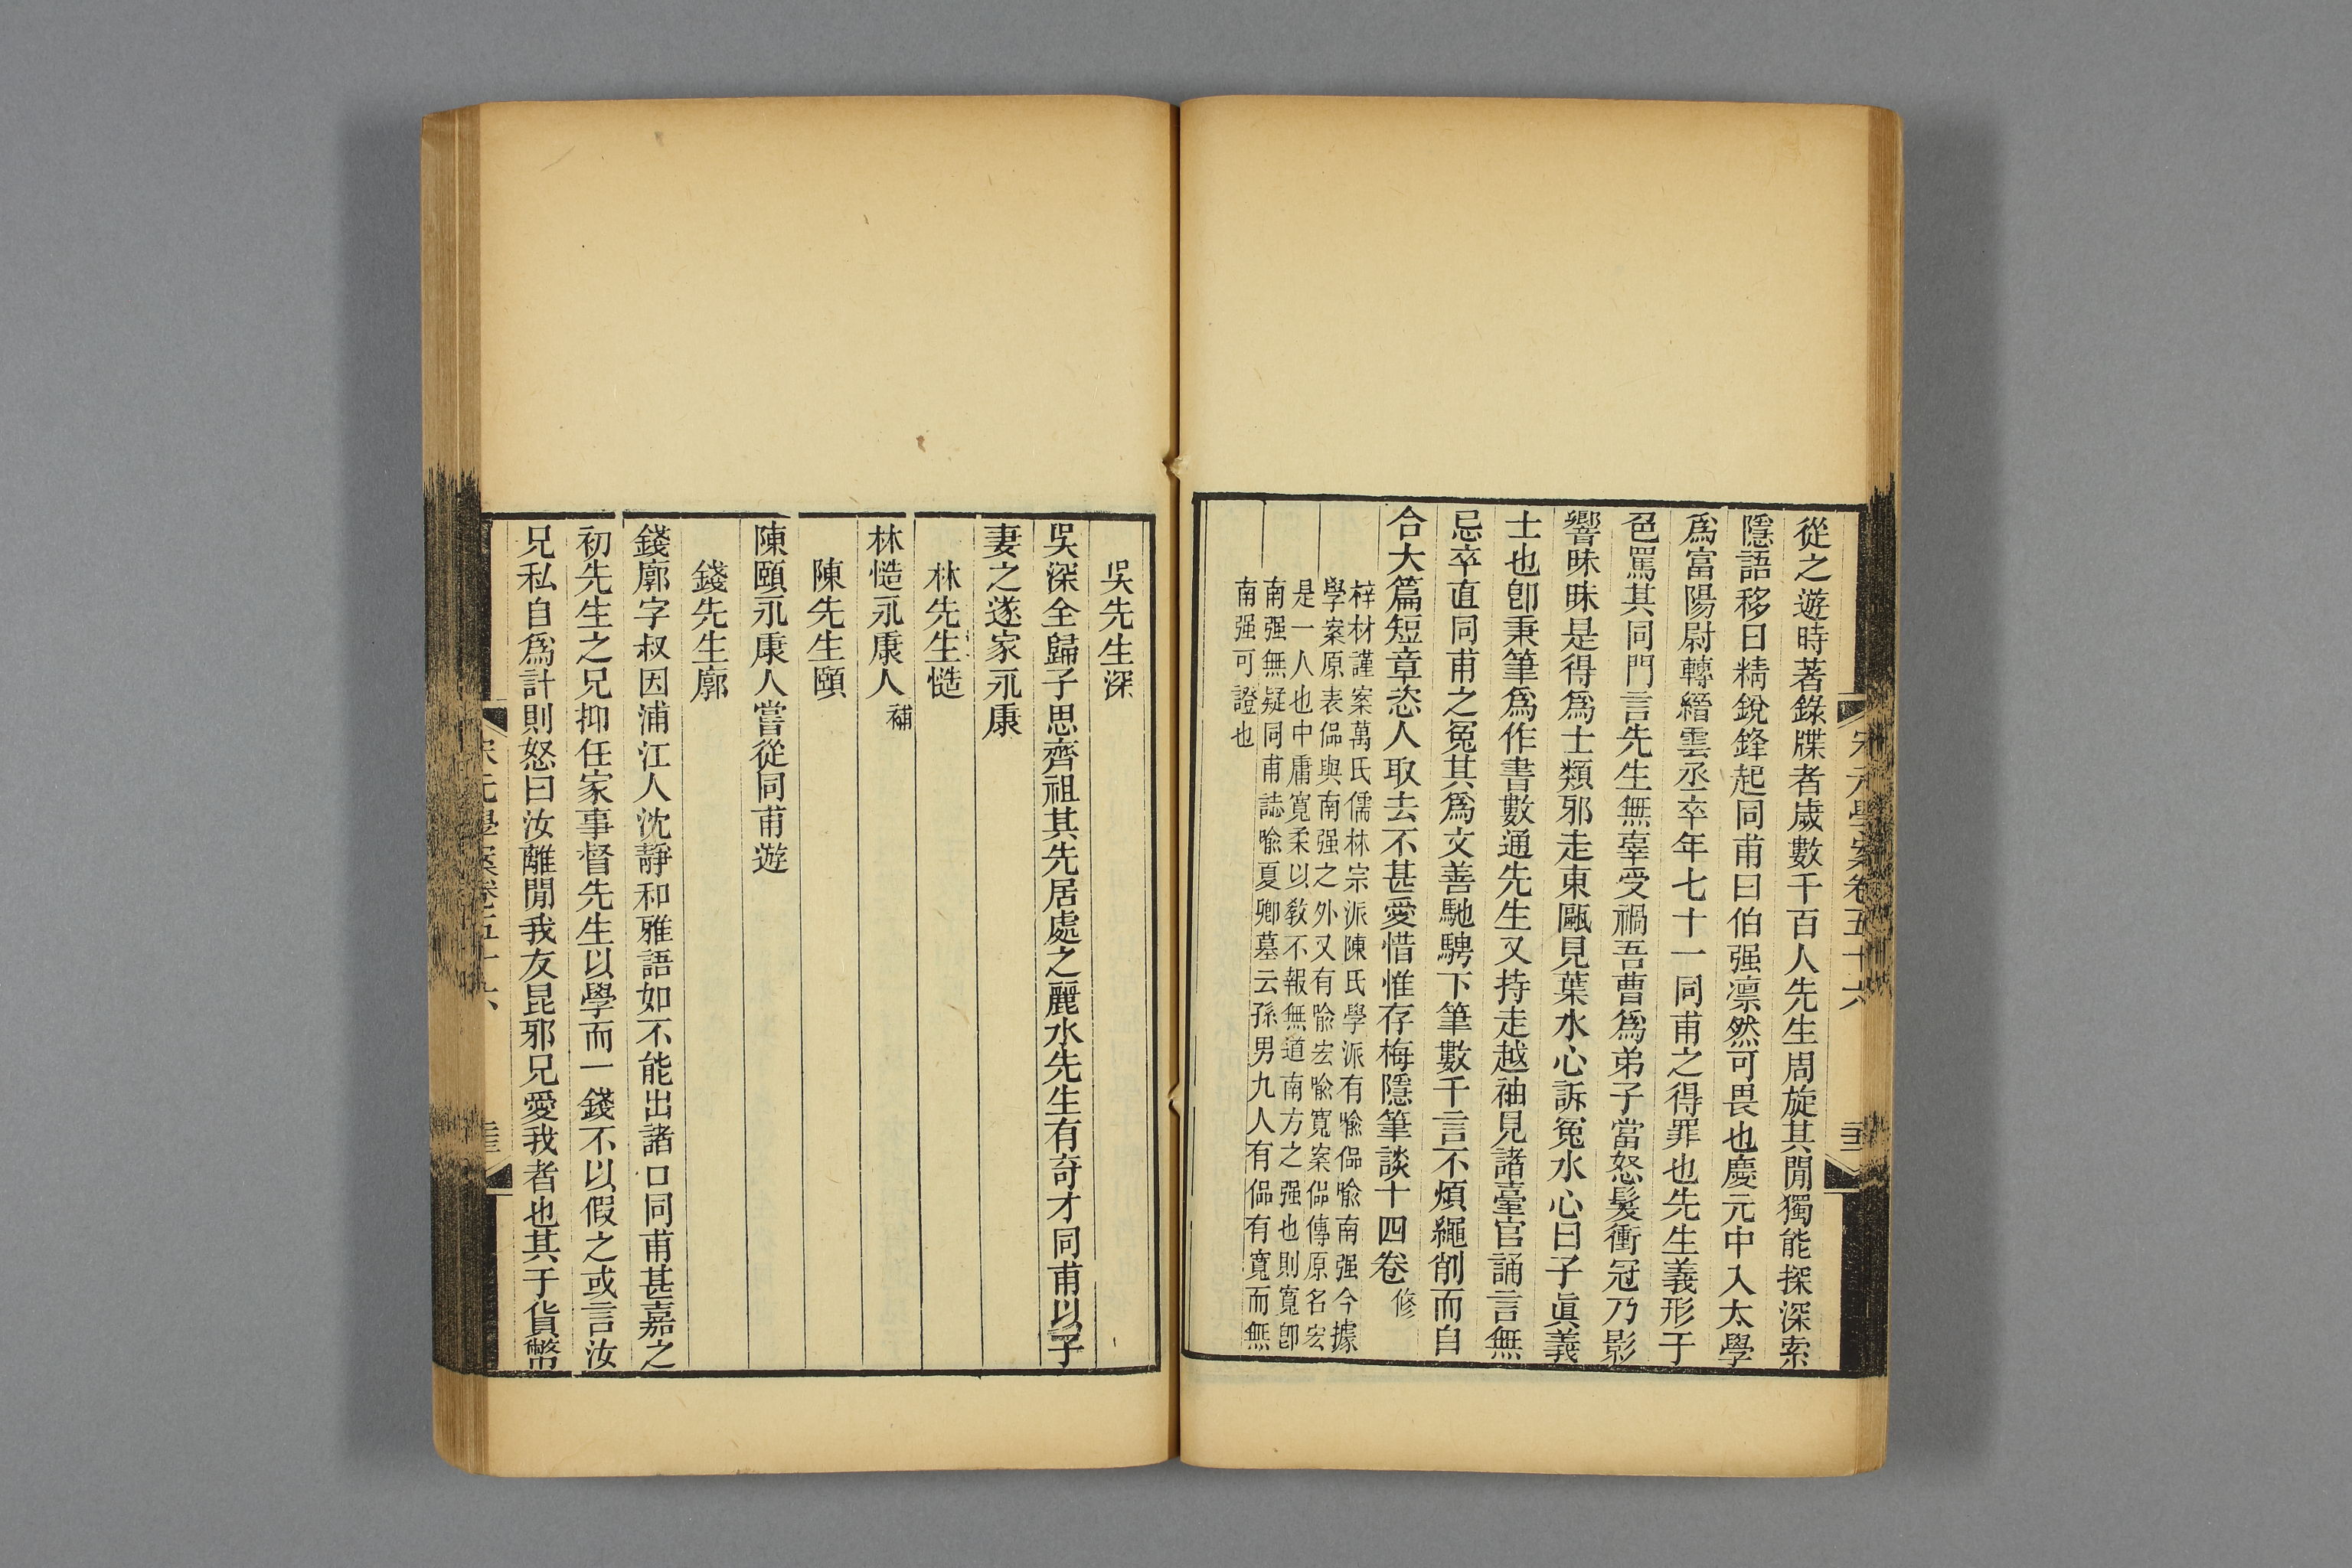 宋元學案卷五十六
從之遊時著錄牒者歲數千百人先生周旋其閒獨能探深索
隱語移日精銳鋒起同甫曰伯强凛然可畏也慶元中入太學
爲富陽尉轉縉雲丞卒年七十一同甫之得罪也先生義形于
色罵其同門言先生無辜受禍吾曹爲弟子當怒髮衝冠乃影
響昧昧是得爲士類邪走東甌見葉水心訴冤水心曰子眞義
士也卽秉筆爲作書數通先生又持走越袖見諸臺官誦言無
忌卒直同甫之冤其爲文善馳騁下筆數千言不煩繩削而自
合大篇短章恣人取去不甚愛惜惟存梅隱筆談十四卷修
梓材謹案萬氏儒林宗派陳氏學派有喩偘喩南强今據
學案原表偘與南强之外又有喩宏喩寬案偘傳原名宏
是一人也中庸寬柔以敎不報無道南方之强也則寬卽
南强無疑同甫誌喩夏卿墓云孫男九人有偘有寬而無
南强可證也
吳先生深
吳深全歸子思齊祖其先居處之麗水先生有奇才同甫以子
妻之遂家永康
林先生慥
林慥永康人補
陳先生頤
陳頤永康人嘗從同甫遊
錢先生廓
錢廓字叔因浦江人沈靜和雅語如不能出諸口同甫甚嘉之
初先生之兄抑任家事督先生以學而一錢不以假之或言汝
兄私自爲計則怒曰汝離閒我友昆邪兄愛我者也其于貨幣
宋元學案卷五十六